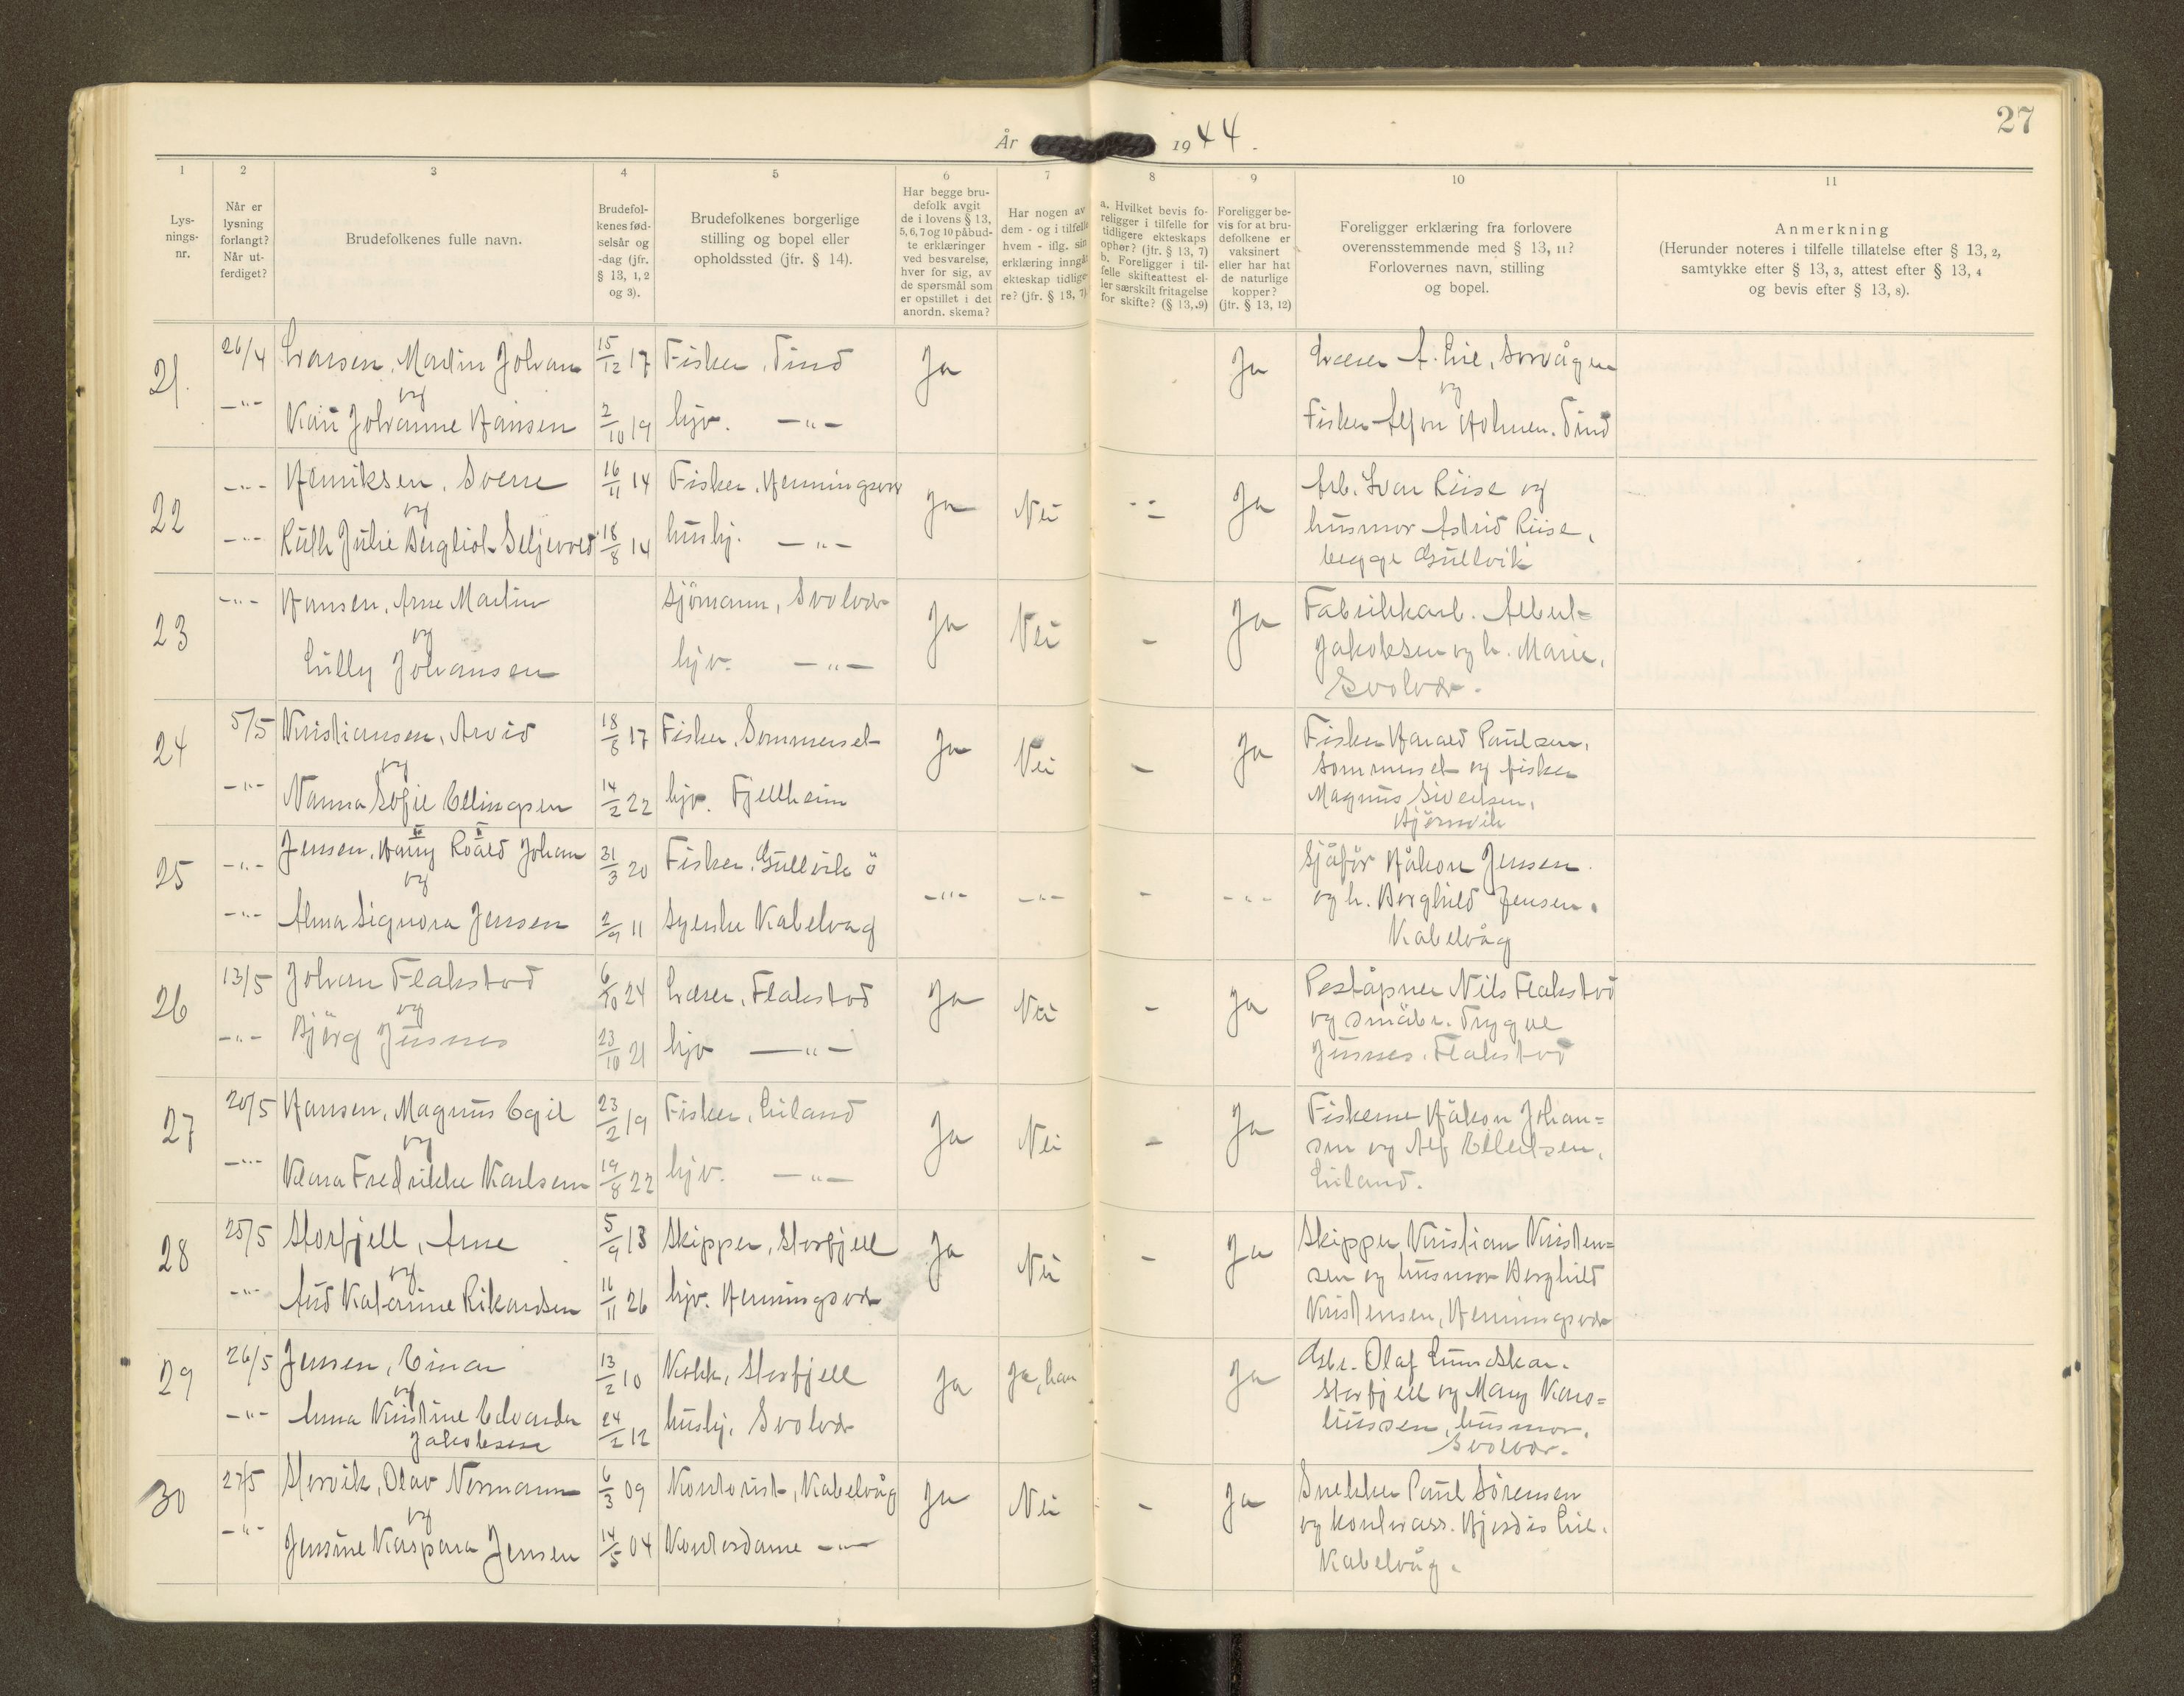 27
År 1944.
1 2 3 4 5 6 7 8 9 10 11
Lys-
nings-
nr.
Når er
lysning
forlangt?
Når ut-
ferdiget?
Brudefolkenes fulle navn.
Brudefol-
kenes fød-
selsår og
-dag (jfr.
§ 13, 1, 2
og 3).
Brudefolkenes borgerlige
stilling og bopel eller
opholdssted (jfr. § 14).
Har begge bru-
defolk avgit
de i lovens § 13,
5, 6, 7 og 10 påbud-
te erklæringer
ved besvarelse,
hver for sig, av
de spørsmål som
er opstillet i det
anordn. skema?
Har nogen av
dem - og i tilfelle
hvem - iflg. sin
erklæring inngåt
ekteskap tidlige-
re? (jfr. § 13, 7)
a. Hvilket bevis fo-
religger i tilfelle for
tidligere ekteskaps
ophør? (jfr. § 13, 7)
b. Foreligger i til-
felle skifteattest el-
ler særskilt fritagelse
for skifte? (§ 13, 9)
Foreligger be-
vis for at bru-
defolkene er
vaksinert
eller har hat
de naturlige
kopper?
(jfr. § 13, 12)
Foreligger erklæring fra forlovere
overensstemmende med § 13, 11?
Forlovernes navn, stilling
og bopel.
Anmerkning
(Herunder noteres i tilfelle tillatelse efter § 13, 2,
samtykke efter § 13, 3, attest efter § 13, 4
og bevis efter § 13, 8).
21. 26/4 Larsen, Martin Johan 15/12 17 Fisker, Tind Ja Ja Lærer A. Lie, Sørvågen
og og
-"- Kari Johanne Hansen 2/10 19 hjv. -"- Fisker Alfon Holmen. Tind
22 -"- Henriksen, Sverre 16/11 14 Fisker, Henningsvær Ja Nei - Ja Arb. Ivar Riise og
og husmor Astrid Riise,
-"- Ruth Julie Bergliot Seljevold 18/8 14 hushj. -"- begge Gullvik
23 -"- Hansen, Arne Martin Sjömann, Svolvær Ja Nei - Ja Fabrikkarb. Albert
og Jakobsen og h. Marie,
Lilly Johansen hjv. -"- Svolvær.
24 5/5 Kristiansen, Arvid 18/8 17 Fisker, Sommerset Ja Nei - Ja Fisker Harald Paulsen,
og Sommerset og fisker
-"- Nanna Sofie Ellingsen 14/2 22 hjv. Fjellheim Magnus Sivertsen,
Björnvik
25 -"- Jensen, Harry Roald Johan 31/3 20 Fisker, Gullvik ö -"- -"- - -"- Sjåför Håkon Jensen
og og h. Borghild Jensen.
-"- Alma Signora Jensen 2/9 11 Syerske Kabelvåg Kabelvåg
26 13/5 Johan Flakstad 6/10 24 Lærer, Flakstad Ja Nei - Ja Poståpner Nils Flakstad
og og småbr. Trygve
-"- Björg Jusnes 23/10 21 hjv -"- Jusnes. Flakstad
27 20/5 Hansen, Magnus Egil 23/2 19 Fisker, Liland Ja Nei - Ja Fiskerne Håkon Johan=
og sen og Alf Ellertsen,
-"- Klara Fredrikke Karlsen 19/8 22 hjv. -"- Liland.
28 25/5 Storfjell, Arne 5/9 13 Skipper, Storfjell Ja Nei - Ja Skipper Kristian Kristen=
og sen og husmor Borghild
-"- Aud Katarine Rikardsen 16/11 26 hjv. Henningsvær Kristensen, Henningsvær
29 26/5 Jensen, Einar 13/2 10 Kokk, Storfjell Ja Ja, han Ja Gbr. Olaf Lundskar.
og Storfjell og Mary Karo=
-"- Anna Kristine Edvarda 24/2 12 hushj. Svolvær liussen, husmor,
Jakobsen Svolvær.
30 27/5 Storvik, Olav Normann 6/3 09 Kontorist, Kabelvåg Ja Nei - Ja Snekker Paul Sörensen
og og kontorass. Hjördis Lie.
-"- Jensine Kaspara Jensen 14/5 04 Kontordame -"- Kabelvåg.